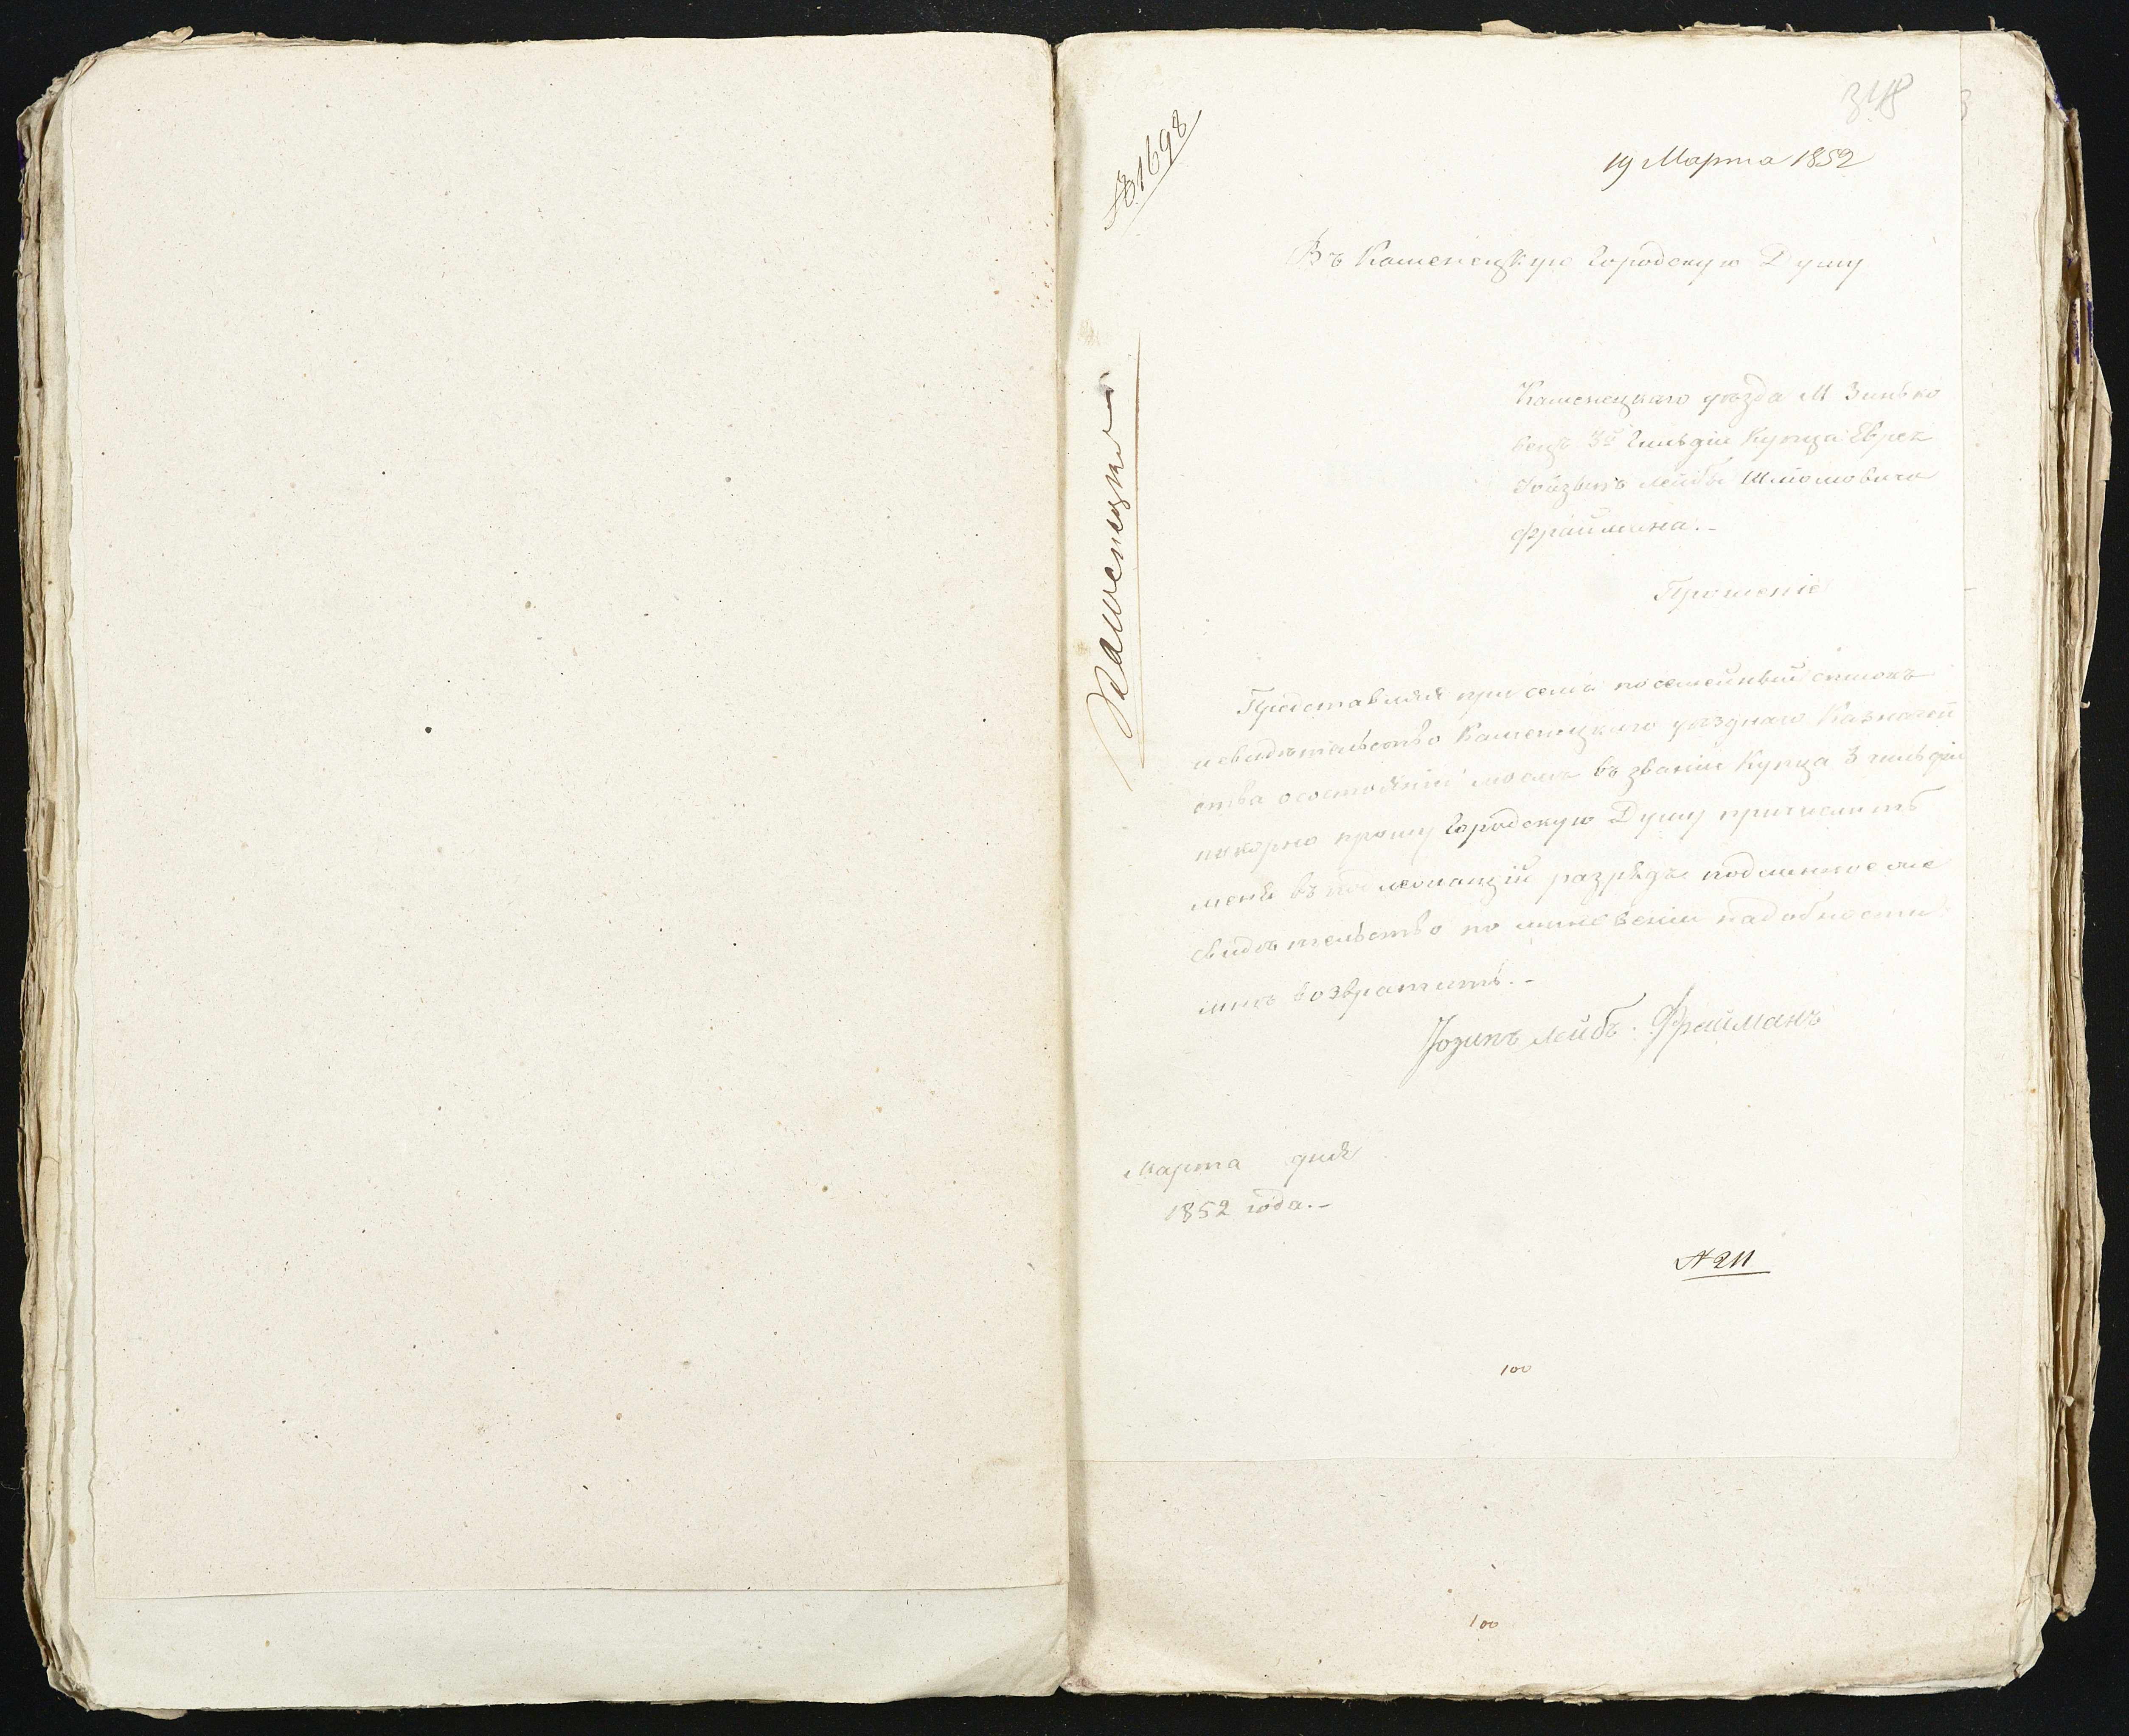 348
№ 1698
19 Марта 1852
Въ Каменецкую Городскую Думу
Каменецкаго уѣзда М Зинько
вецъ 3й Гильдіи Купца Еврея
Лейбы Шлiомовича
Фраймана.-
Прошеніе
Каменецкаго
Представляя при семъ посемейный списокъ
и свидѣтельство Каменецкаго уѣзднаго Казначей
ства о состояніи моемъ въ званіи Купца 3 гильдіи
покорно прошу Городскую Думу причислить
меня въ надлежащій разрядъ подлинное же
свидѣтельство по миновеніи надобности
мнѣ возвратить.-
Іозипъ Лейбъ Фрайманъ
Марта дня
1852 года.-
№ 211
100
100